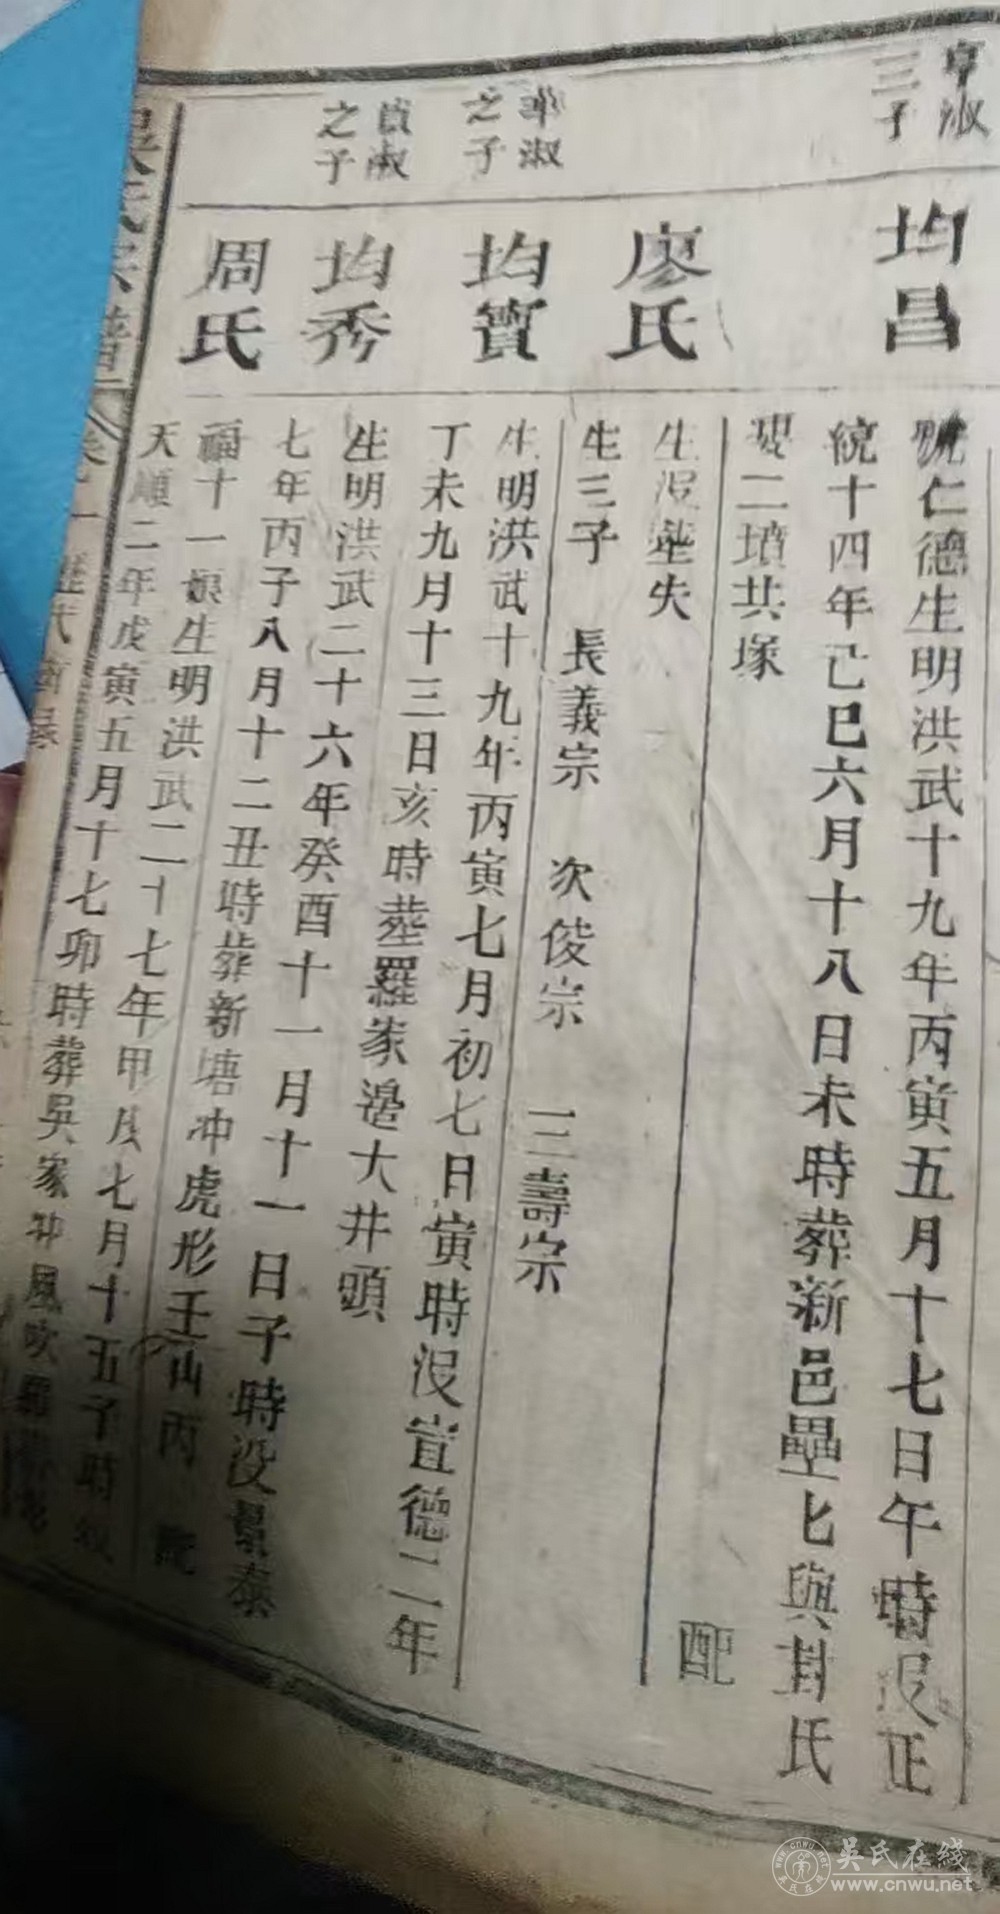 淑
三子
均昌
號仁德生明洪武十九年丙寅五月十七日午時沒正
統十四年己巳六月十八日未時葬新邑壘七與封氏
二墳共塚
配
廖氏
生沒塟失
生三子 長義宗 次俊宗 三壽宗
華淑
之子
均寶
生明洪武十九年丙寅七月初七日寅時沒宣德二年
丁未九月十三日亥時塟羅家邊大井頭
淑
之子
均秀
生明洪武二十六年癸酉十一月十一日子時沒景泰
七年丙子八月十二丑時葬新塘冲虎形壬山丙
周氏
福十一娘生明洪武二十七年甲戌七月十五子時歿
天順二年戊寅五月十七卯時葬吳家冲風吹羅帶形
吳氏宗譜
卷
吳氏在綫
www.cnwu.net